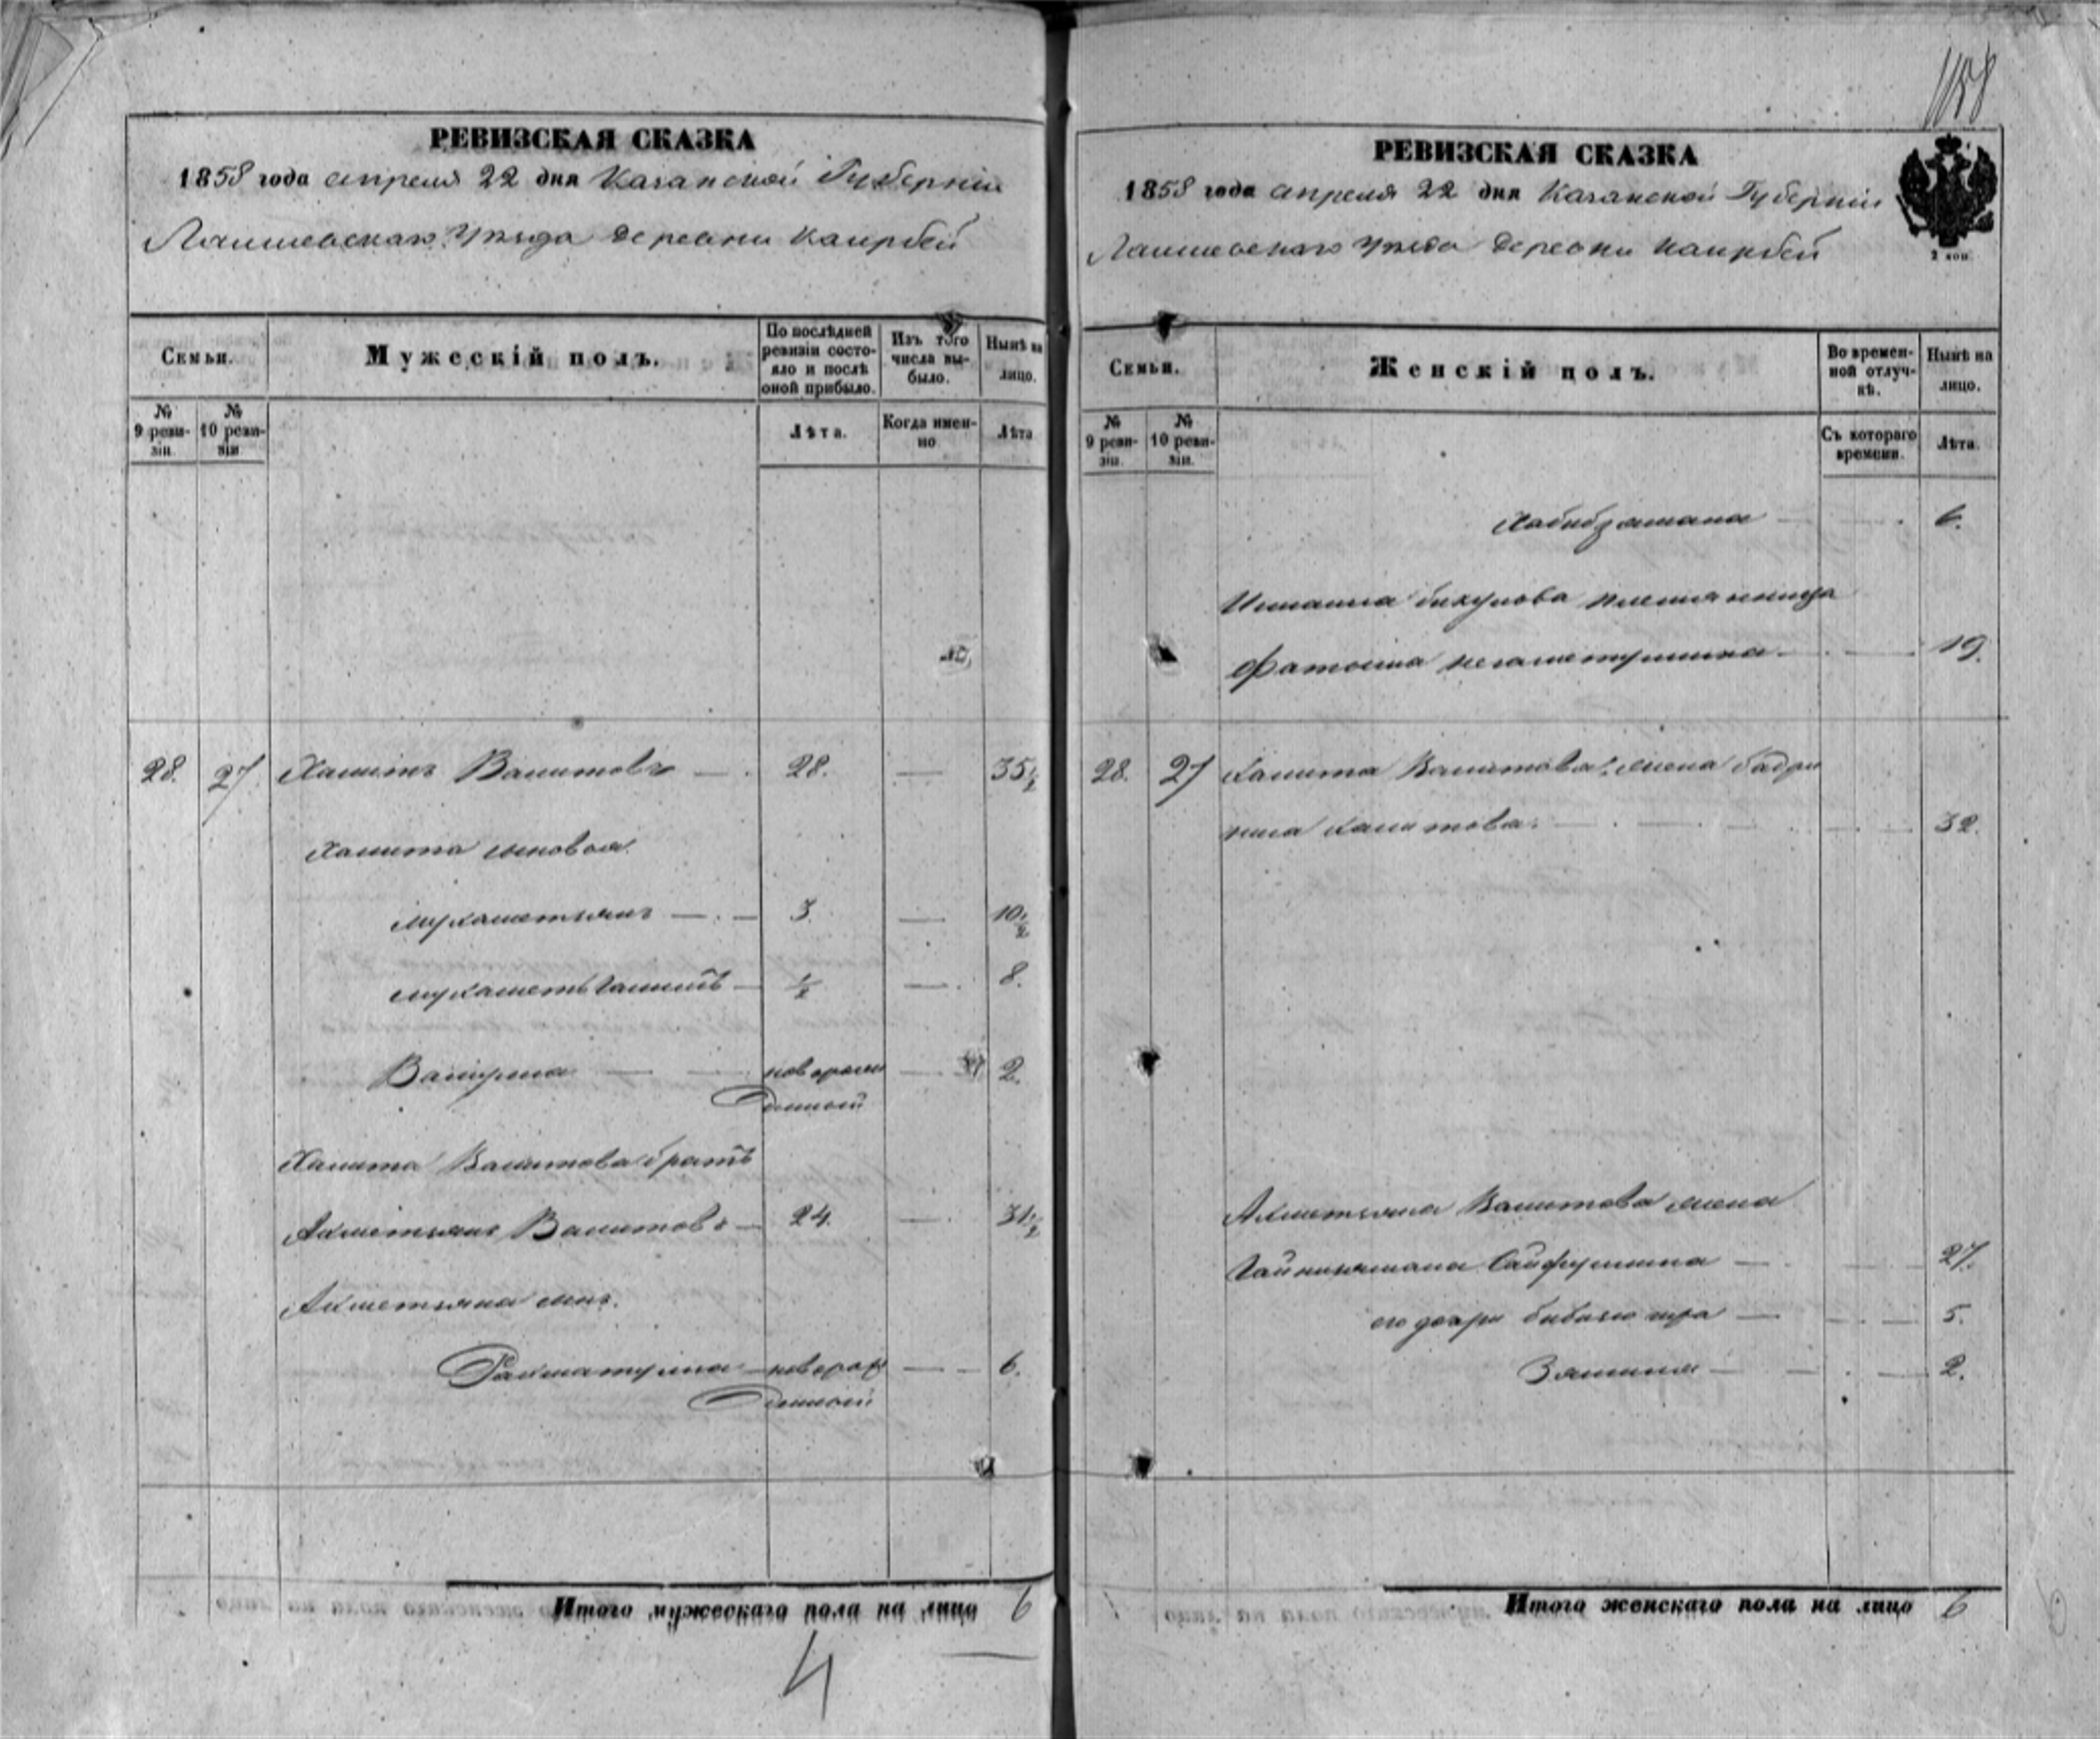 1158
РЕВИЗСКАЯ СКАЗКА
1858 года апреля 22 дня Казанской Губернiи
Лаишевскаго Уѣзда деревни Каирбей
Семьи.
Мужескiй полъ.
По послѣдней ревизiи состо-
яло и послѣ
оной прибыло.
Изъ того
числа вы-
было.
Нынѣ на
лицо.
№
9 реви-
зiи
№
10 реви-
зiи
Лѣта.
Когда имен-
но
Лѣта
28. 27 Хамитъ Валитовъ — 28. — 35 1/2
Хамита сыновья
Мухаметьянъ — 3. — 10 1/2
Мухаметъ — 1/2 — 8.
Валиулла — новорож — 2.
денный
Хамита Валитова братъ
Ахметьянъ Валитовъ — 24. — 31 1/2
Ахметьяна сынъ.
Рахматулла — новорож — 6.
денный
Итого мужескаго пола на лицо 6
4
РЕВИЗСКАЯ СКАЗКА
1858 года апреля 22 дня Казанской Губернiи
Лаишевскаго Уѣзда деревни Каирбей
2 коп.
Семьи.
Женскiй полъ.
Во времен-
ной отлуч-
кѣ.
Нынѣ на
лицо.
№
9 реви-
зiи.
№
10 реви-
зiи.
Съ котораго
времени.
Лѣта.
Хабибзямала — 6.
бикулова племянница
Фатыма — 19.
28. 27 Хамита Валитова жена Бадри
Халитова — 32.
Ахметьяна Валитова жена
Гайниямала Сайфуллина — 27.
его дочри — 5.
— 2.
Итого женскаго пола на лицо 6